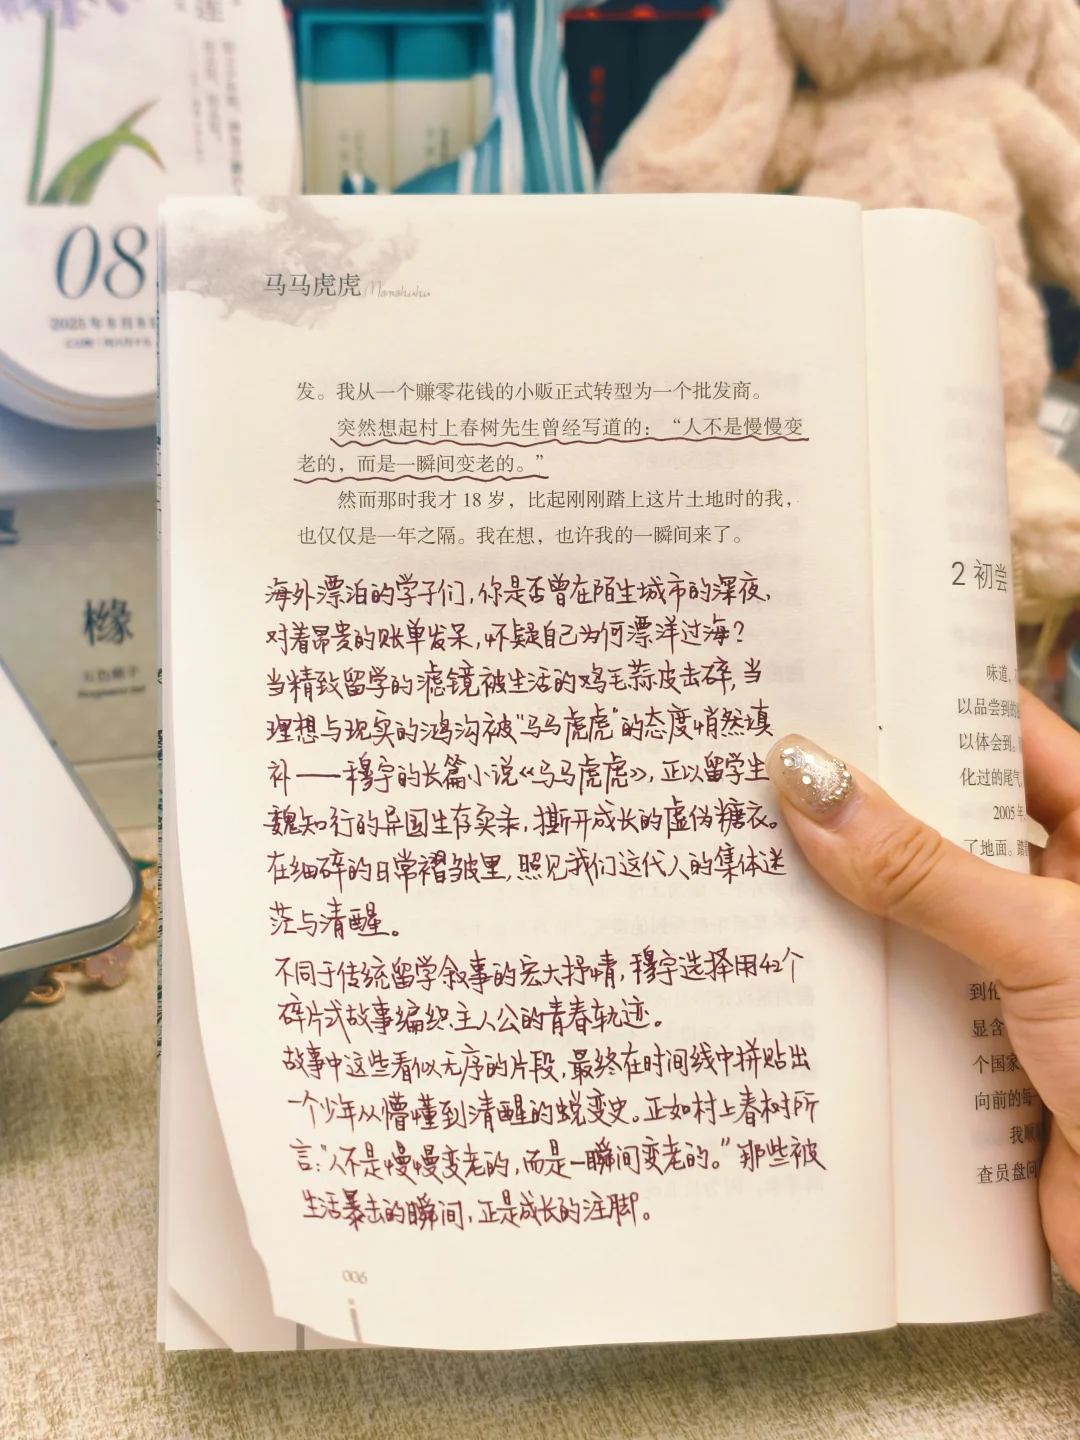 莲
08
2025年8月8日
橡
马马虎虎 Mamahuhu
发。我从一个赚零花钱的小贩正式转型为一个批发商。
突然想起村上春树先生曾经写道的：“人不是慢慢变
老的，而是一瞬间变老的。”
然而那时我才 18 岁，比起刚刚踏上这片土地时的我，
也仅仅是一年之隔。我在想，也许我的一瞬间来了。
海外漂泊的学子们，你是否曾在陌生城市的深夜，
对着昂贵的账单发呆，怀疑自己为何漂洋过海？
当精致留学的滤镜被生活的鸡毛蒜皮击碎，当
理想与现实的鸿沟被“马马虎虎”的态度悄然填
补——穆宇的长篇小说《马马虎虎》，正以留学生
魏知行的异国生存实录，撕开成长的虚伪糖衣。
在细碎的日常褶皱里，照见我们这代人的集体迷
茫与清醒。
不同于传统留学叙事的宏大抒情，穆宇选择用42个
碎片式故事编织主人公的青春轨迹。
故事中这些看似无序的片段，最终在时间线中拼贴出
一个少年从懵懂到清醒的蜕变史。正如村上春树所
言：“人不是慢慢变老的，而是一瞬间变老的。”那些被
生活暴击的瞬间，正是成长的注脚。
006
2 初尝
味道，
以品尝到的
以体会到。
化过的尾气
2005 年
了地面。
到伦
显含
个国家
向前的每一
我顺
查员盘问